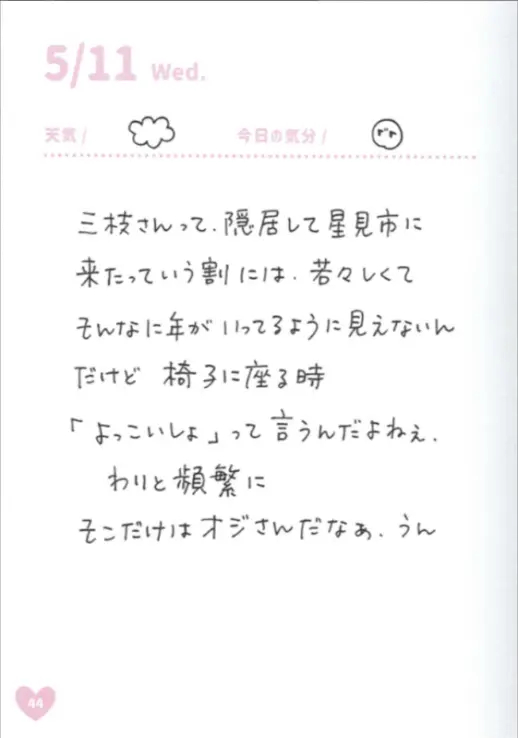 5/11 Wed.
天気/ 今日の気分/
三枝さんって、隠居して星見市に
来たっていう割には、若々しくて
そんなに年がいってるように見えないん
だけど 椅子に座る時
「よっこいしょ」って言うんだよねぇ、
わりと頻繁に
そこだけはオジさんだなぁ、うん
44